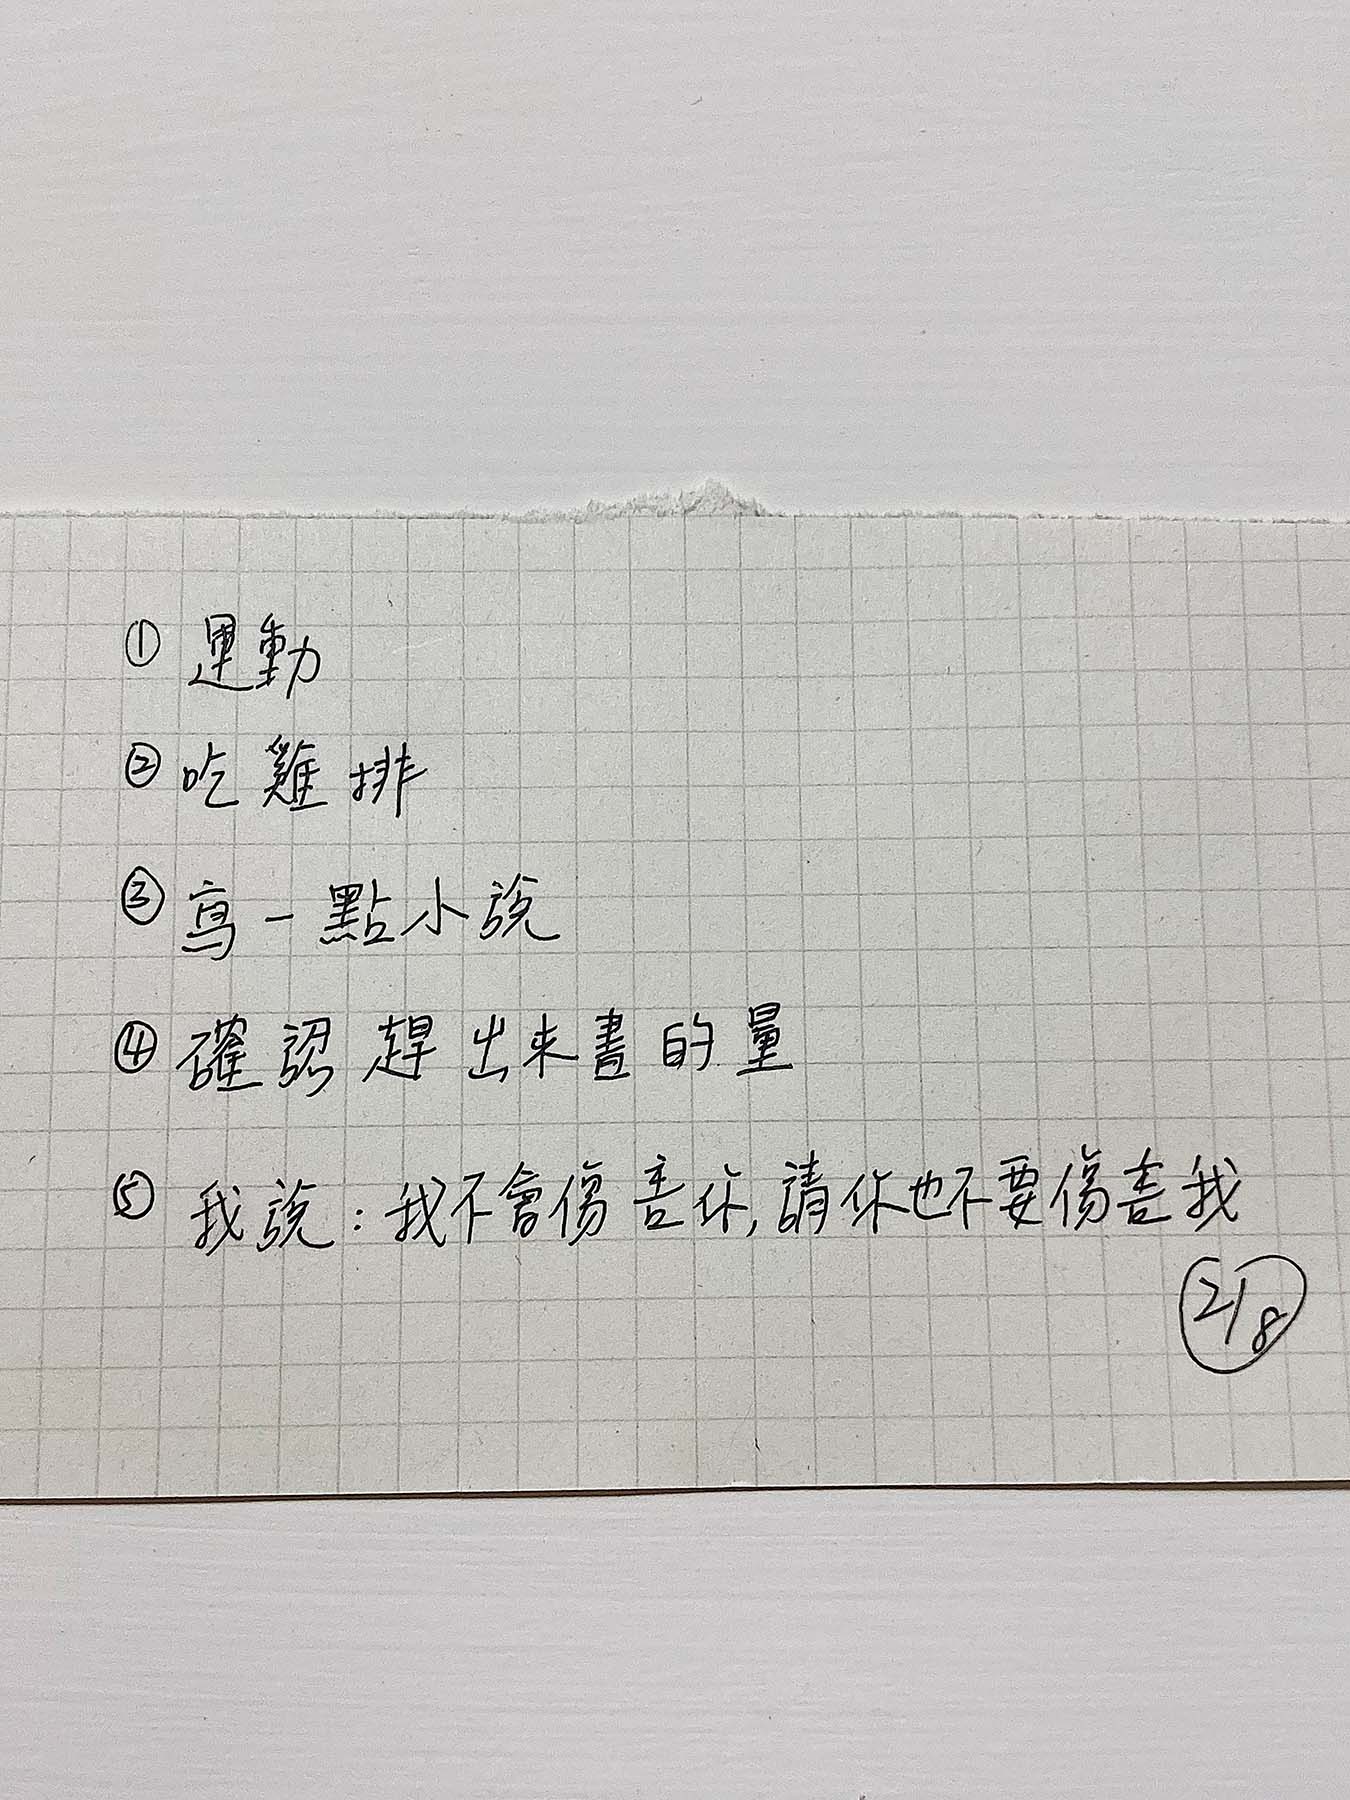 ① 運動
② 吃雞排
③ 寫一點小說
④ 確認趕出來書的量
⑤ 我說：我不會傷害你,請你也不要傷害我
2/8